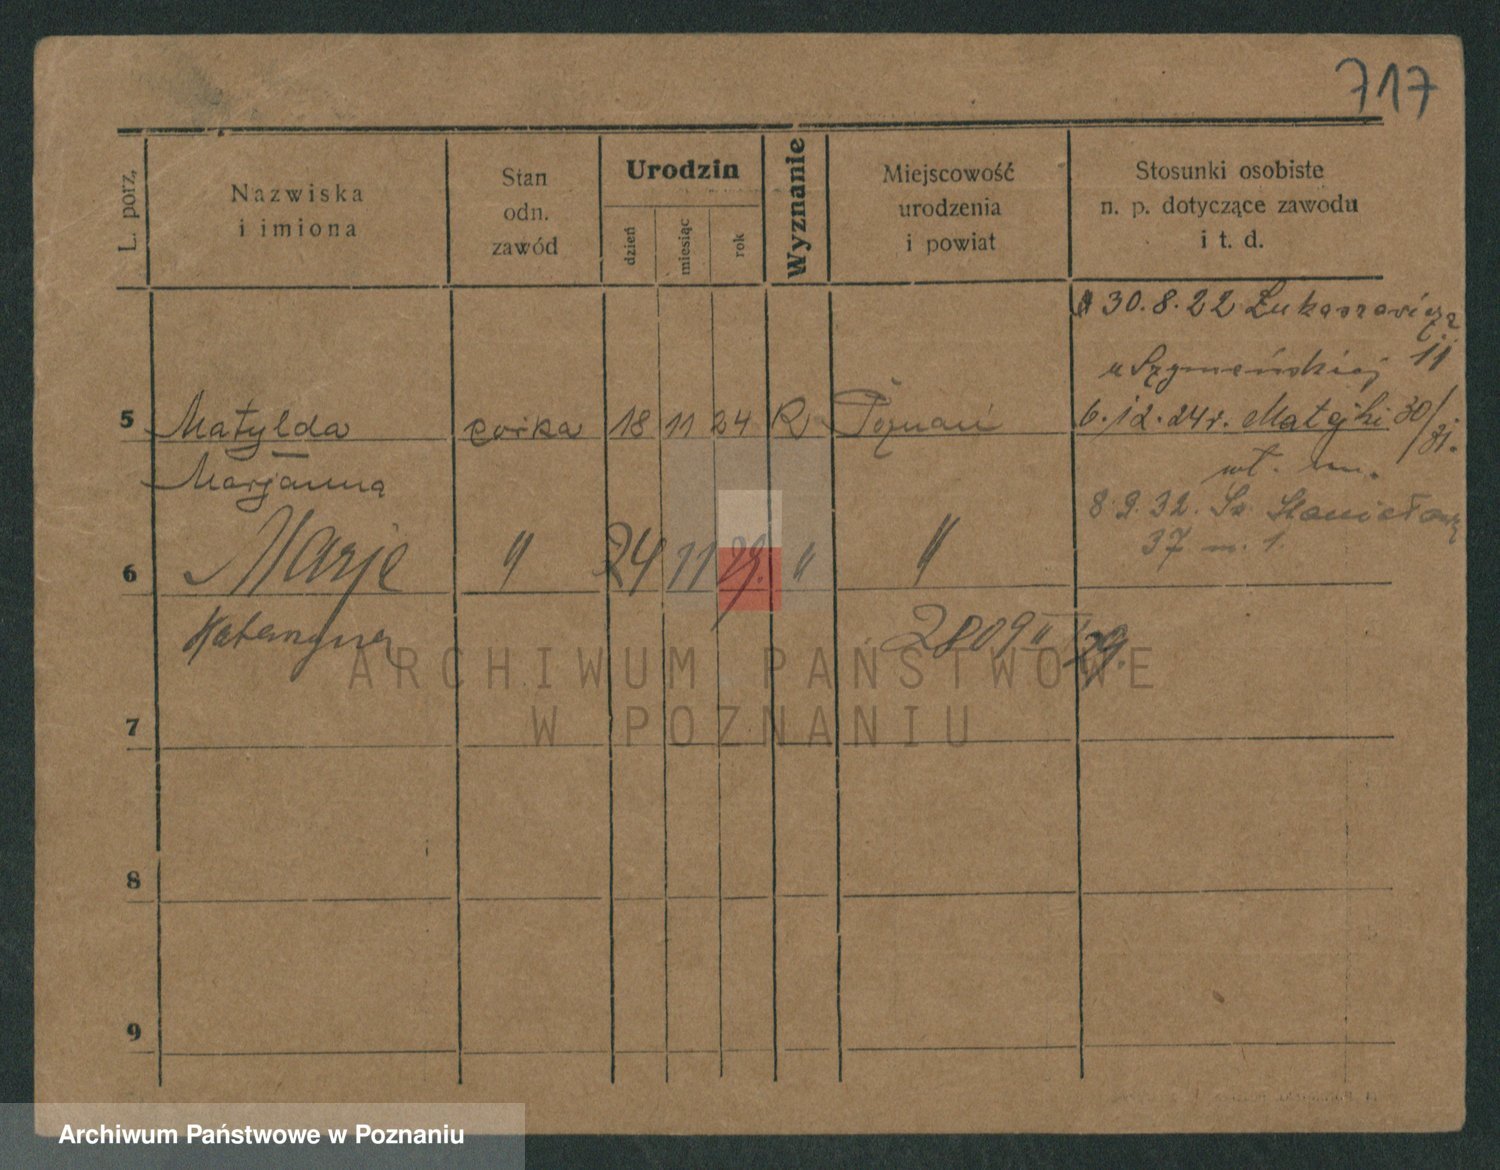 717
L. porz.
Nazwiska
i imiona
Stan
odn.
zawód
Urodzin
dzień
miesiąc
rok
Wyznanie
Miejscowość
urodzenia
i powiat
Stosunki osobiste
n. p. dotyczące zawodu
i t. d.
30.8.22 Łukaszewicza
11
u Szymańskiej
5 Matylda córka 18 11 24 R Poznań 6.12.24r. Matejki 30/31.
Marjanna
8.9.32. 
37 m. 1.
6 Marje " 24 11 29. " "
Katarzyna
2809 29.
7
8
9
ARCHIWUM PAŃSTWOWE
W POZNANIU
Archiwum Państwowe w Poznaniu